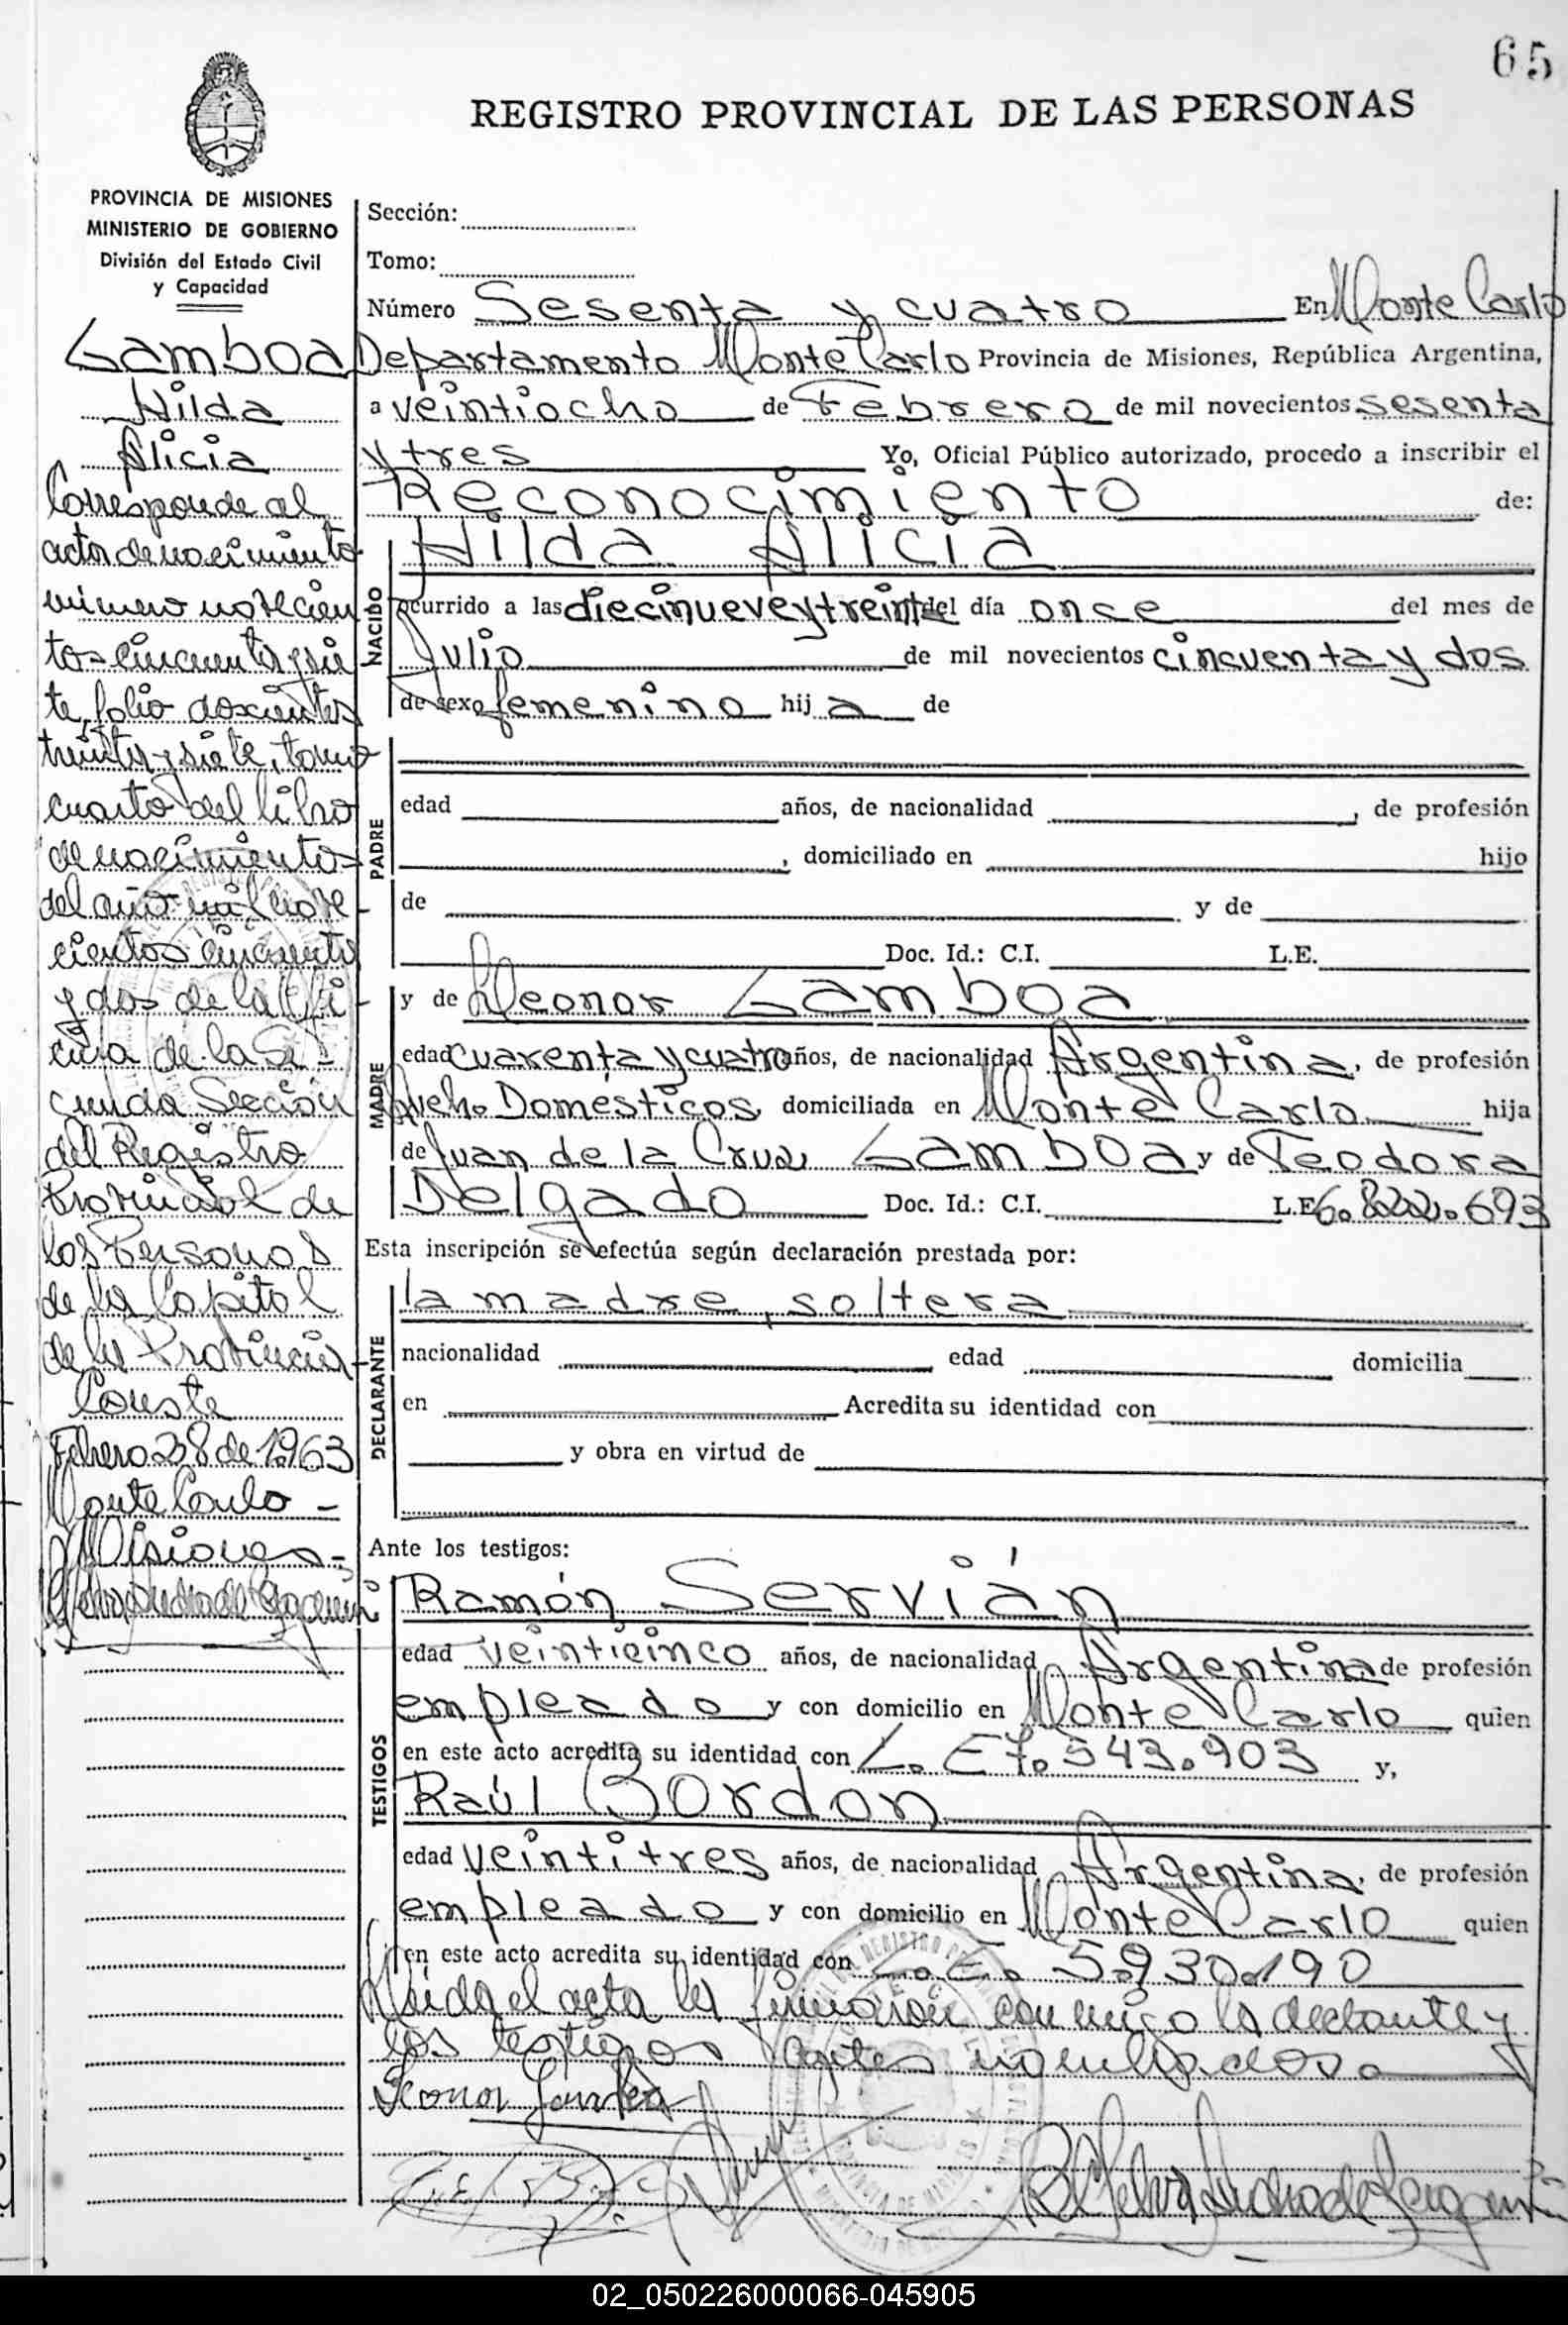 65
REGISTRO PROVINCIAL DE LAS PERSONAS
PROVINCIA DE MISIONES
MINISTERIO DE GOBIERNO
División del Estado Civil
y Capacidad
Gamboa
Hilda
Alicia
Corresponde al
acta de nacimiento
número novecien
tos cincuenta y sie
te, folio doscientos
treinta y siete, tomo
cuarto del libro
de nacimientos
del año mil nove-
cientos cincuenta
y dos de la Ofi-
cina de la Se-
gunda Sección
del Registro
Provincial de
las Personas
de la Capital
de la Provincia-
Conste
Febrero 28 de 1963
Monte Carlo -
Misiones-
Sección:
Tomo:
Número Sesenta y cuatro En Monte Carlo
Departamento Monte Carlo Provincia de Misiones, República Argentina,
a veintiocho de Febrero de mil novecientos sesenta
y tres Yo, Oficial Público autorizado, procedo a inscribir el
Reconocimiento de:
NACIDO
Hilda Alicia
ocurrido a las diecinueve y treinta del día once del mes de
Julio de mil novecientos cincuenta y dos
de sexo femenino hij a de
PADRE
edad años, de nacionalidad , de profesión
, domiciliado en hijo
de y de
Doc. Id.: C.I. L.E.
MADRE
y de Leonor Gamboa
edad cuarenta y cuatro años, de nacionalidad Argentina, de profesión
Queh. Domésticos domiciliada en Monte Carlo hija
de Juan de la Cruz Gamboa y de Teodora
Delgado Doc. Id.: C.I. L.E. 6.822.693
Esta inscripción se efectúa según declaración prestada por:
DECLARANTE
la madre, soltera
nacionalidad edad domicilia
en Acredita su identidad con
y obra en virtud de
Ante los testigos:
TESTIGOS
Ramón Servián
edad veinticinco años, de nacionalidad Argentina de profesión
empleado y con domicilio en Monte Carlo quien
en este acto acredita su identidad con L. E 7.543.903 y,
Raúl Bordon
edad veintitres años, de nacionalidad Argentina, de profesión
empleado y con domicilio en Monte Carlo quien
en este acto acredita su identidad con L.E. 5.930.190
Leida el acta la firmaron conmigo la declante y
los testigos antes nombrados.
Leonor Gamboa
02_050226000066-045905